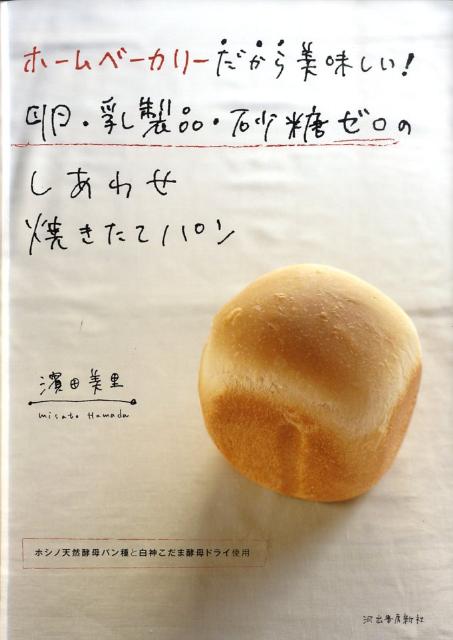 ホームベーカリーだから美味しい!
卵・乳製品・砂糖ゼロの
しあわせ
焼きたてパン
濱田美里
misato Hamada
ホシノ天然酵母パン種と白神こだま酵母ドライ使用
河出書房新社